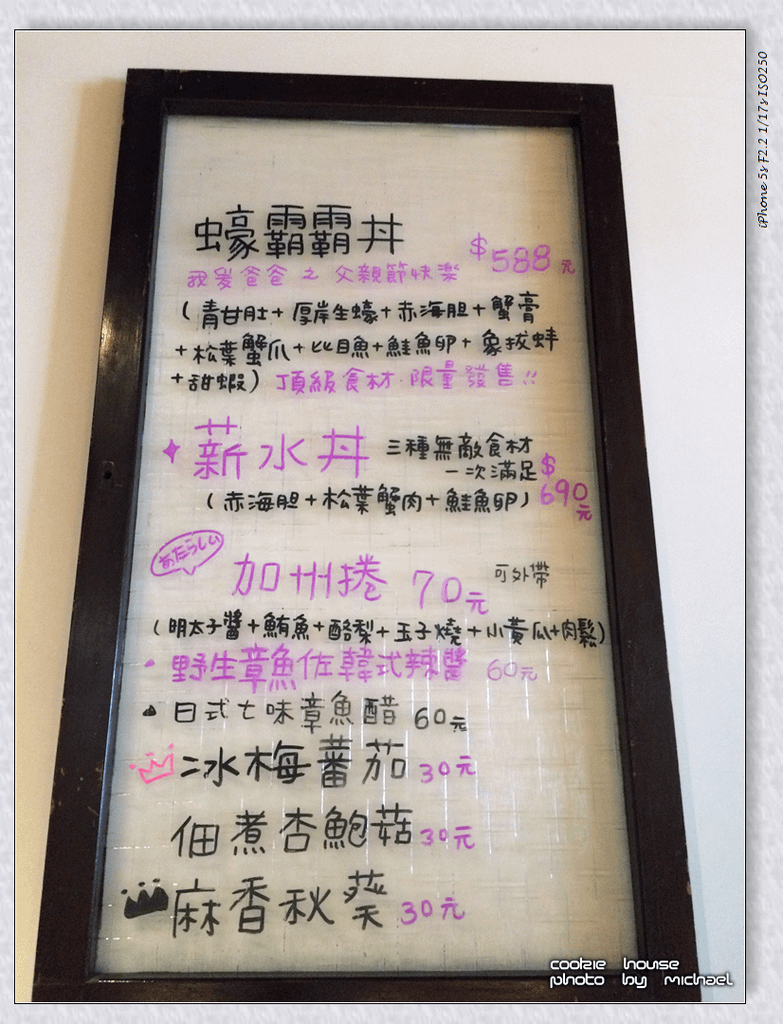 iPhone 5s F2.2 1/17s ISO250
蠔霸霸丼
$588元
我愛爸爸之父親節快樂
(青甘肚+厚岸生蠔+赤海胆+蟹膏
+松葉蟹爪+比目魚+鮭魚卵+象拔蚌
+甜蝦)頂級食材.限量發售!!
薪水丼 三種無敵食材
一次滿足 $690元
(赤海胆+松葉蟹肉+鮭魚卵)
あたらしい
加州捲 70元 可外帶
(明太子醬+鮪魚+酪梨+玉子燒+小黃瓜+肉鬆)
野生章魚佐韓式辣醬 60元
日式七味章魚醋 60元
冰梅蕃茄 30元
佃煮杏鮑菇 30元
麻香秋葵 30元
cookie house
photo by michael